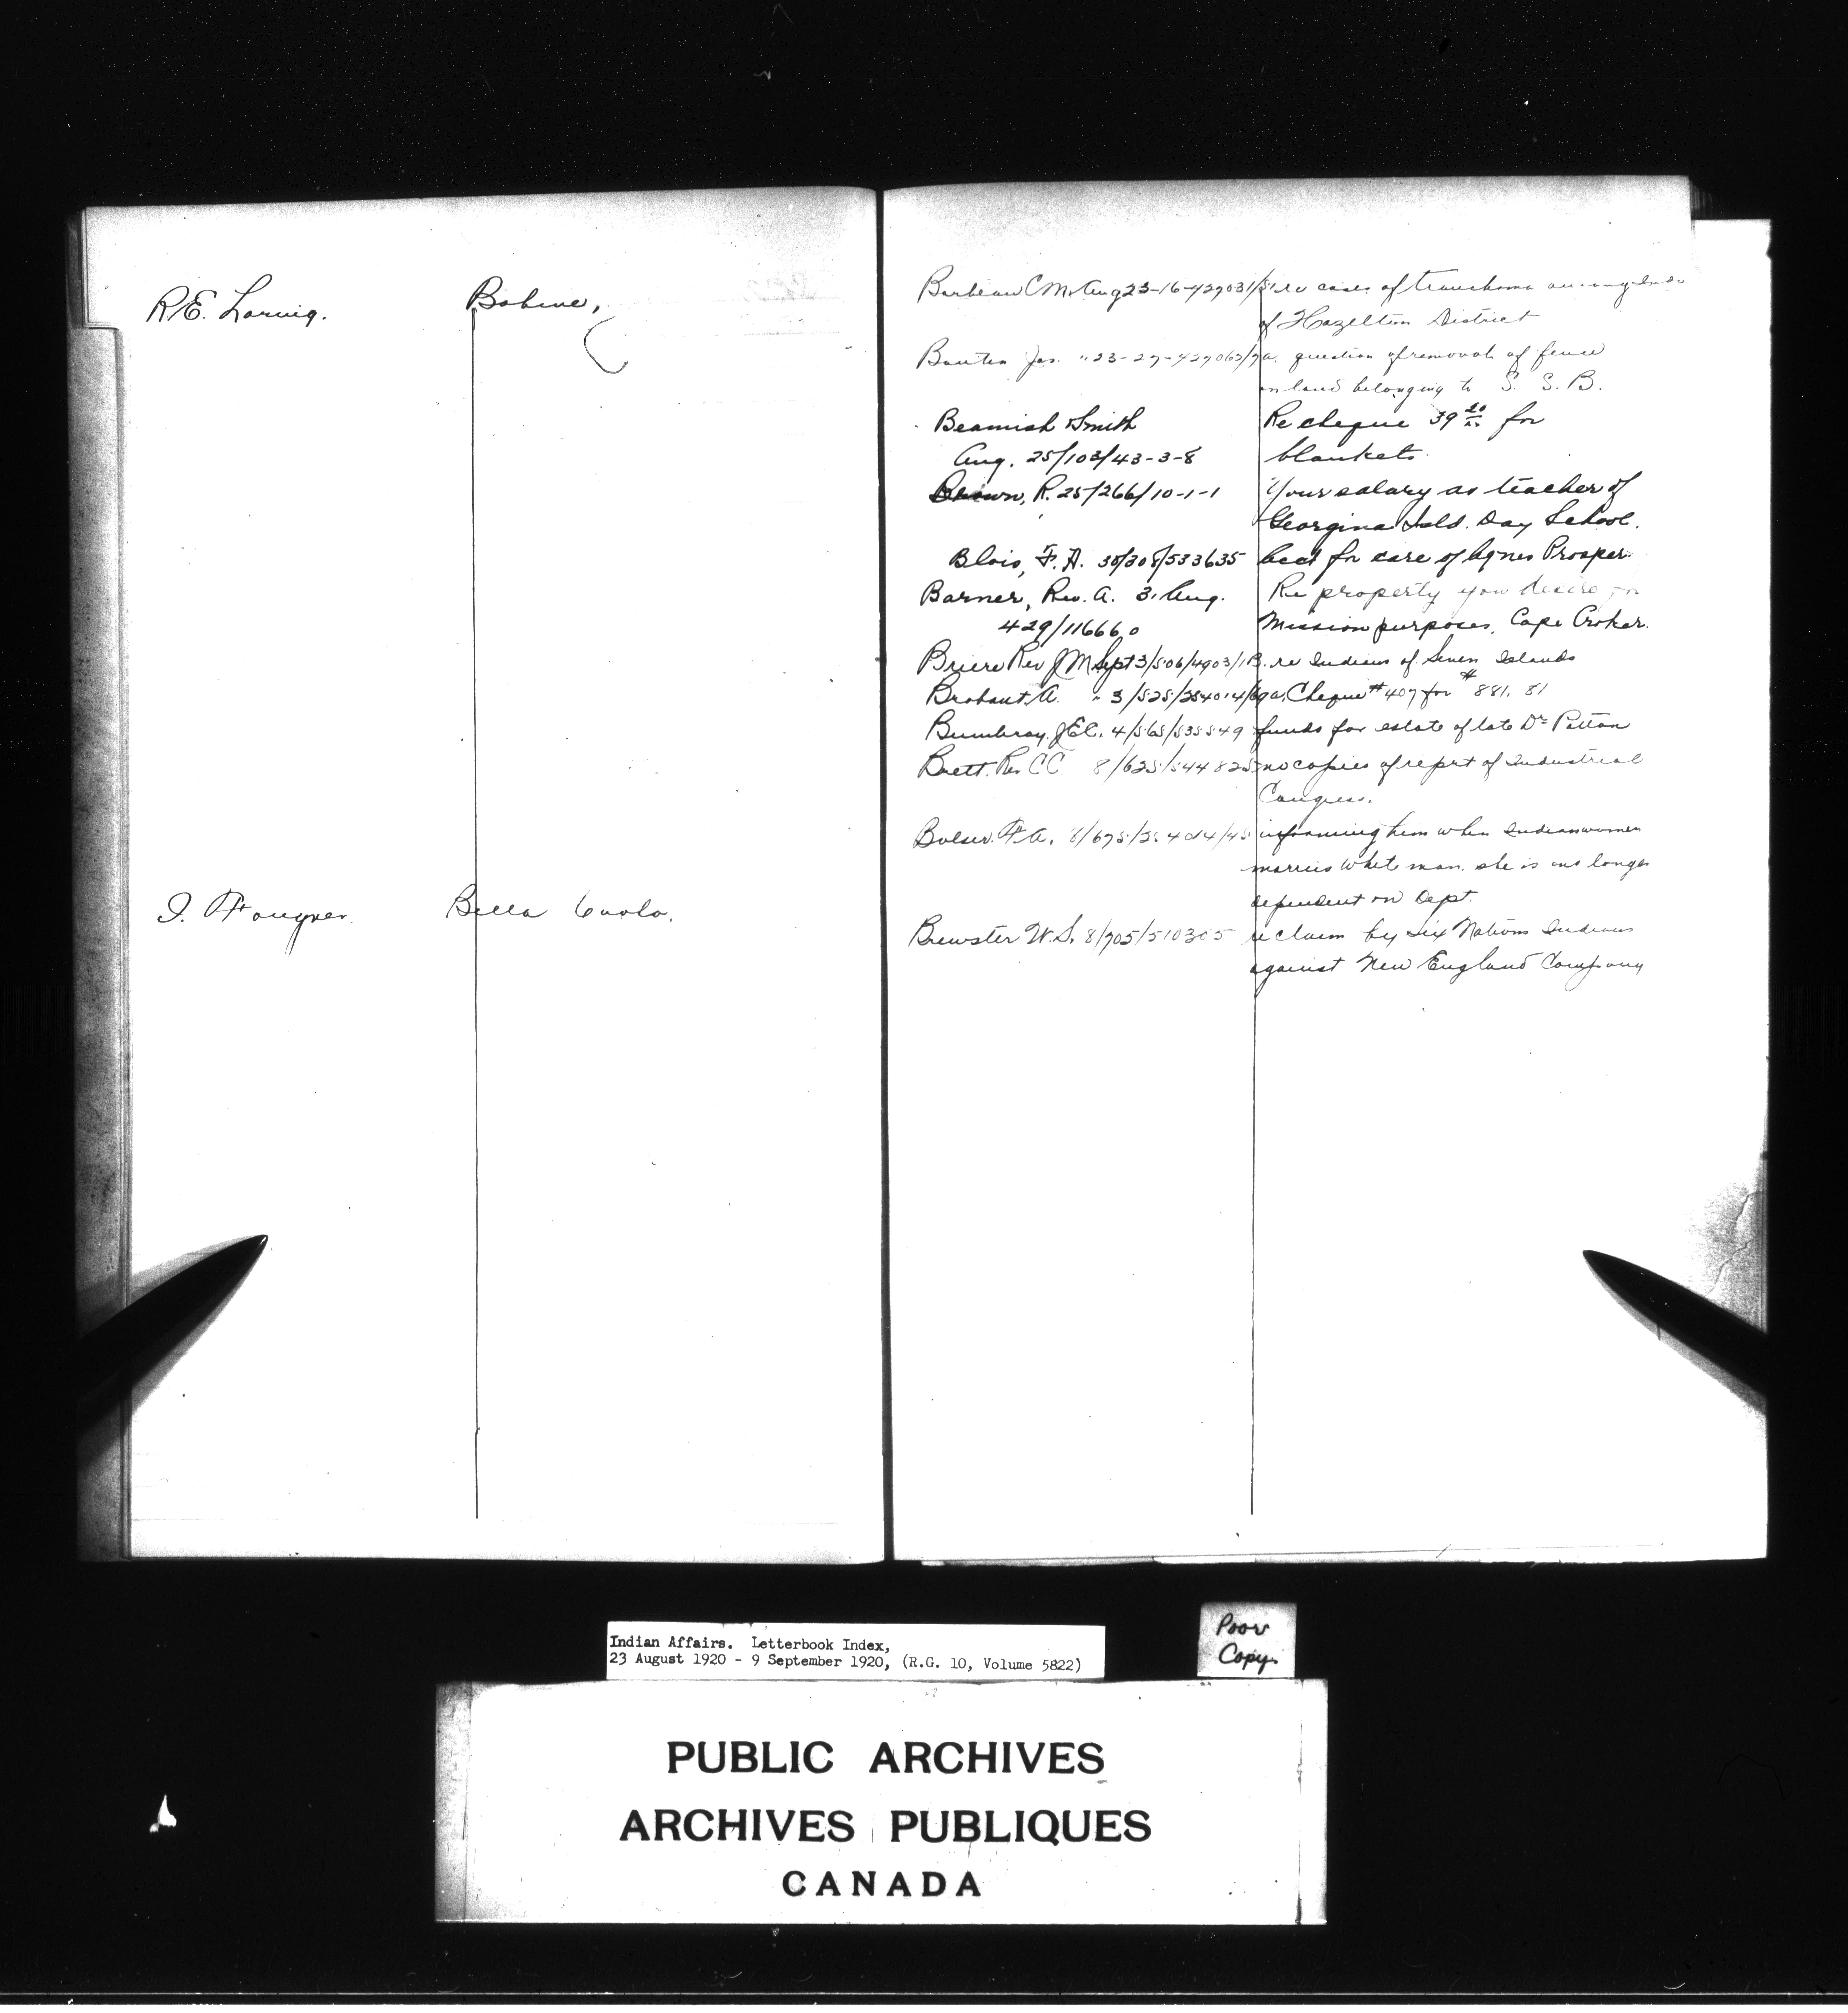 R.E. Loring.
Babine,
I. Fougner
Bella Coola.
Barbeau C.M. Aug 23-16-427031/51 re cases of trauchoma among Inds
of Hazelton District
Jas. " 23-27-427062/7a. question of removal of fence
on land belonging to S. S. B.
Beamish & Smith Re cheque 39 20/xx for
Aug. 25/103/43-3-8 blankets.
Brown, R. 25/266/10-1-1 Your salary as teacher of
Georgina Isld. Day School.
Blois, F. A. 30/308/533635 acct for care of Agnes Prosper.
Barner, Rev. A. 31 Aug. Re property you desire for
429/116660 Mission purposes, Cape Croker.
Briere Rev J M Sept 3/506/4903/1B. re Indians of Seven Islands
Brabant A. " 3/525/254014/69a. Cheque #407 for $881.81
J.E.C. 4/565/535549 funds for estate of late Dr Patton
Brett. Rev CC 8/625/544825 no copies of reprt of Industrial
Congress.
F.A. 8/675/254014/45 informing him when Indian women
marries white man, she is no longer
dependent on Dept.
Brewster W.S. 8/705/510305 re claim by Six Nations Indians
against New England Company
Indian Affairs. Letterbook Index,
23 August 1920 - 9 September 1920, (R.G. 10, Volume 5822)
Poor
Copy.
PUBLIC ARCHIVES
ARCHIVES PUBLIQUES
CANADA